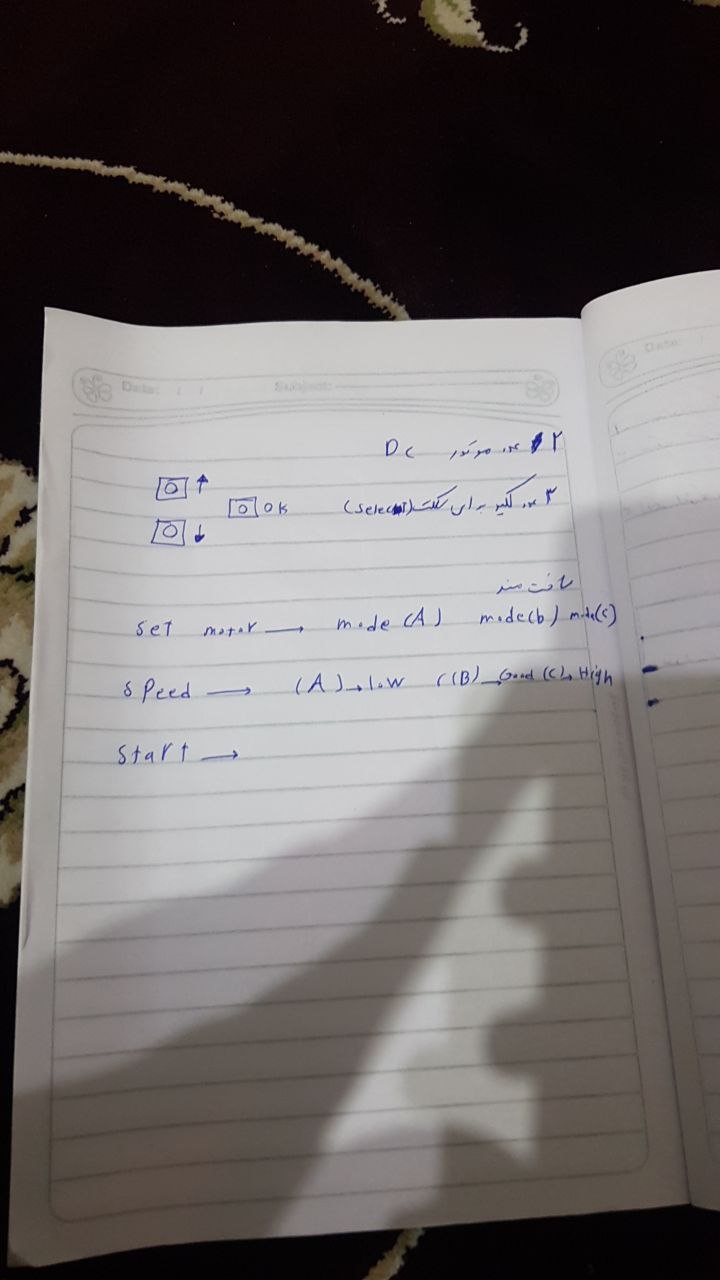 Date: / / Subject:
۲ عدد موتور DC
↑
۳ عدد کلید برای سلکت (Select) OK
↓
ساخت منو
Set motor → mode (A) mode(b) mode(c)
Speed → (A) → low ((B) → Good (C) → High
Start →
Date: /